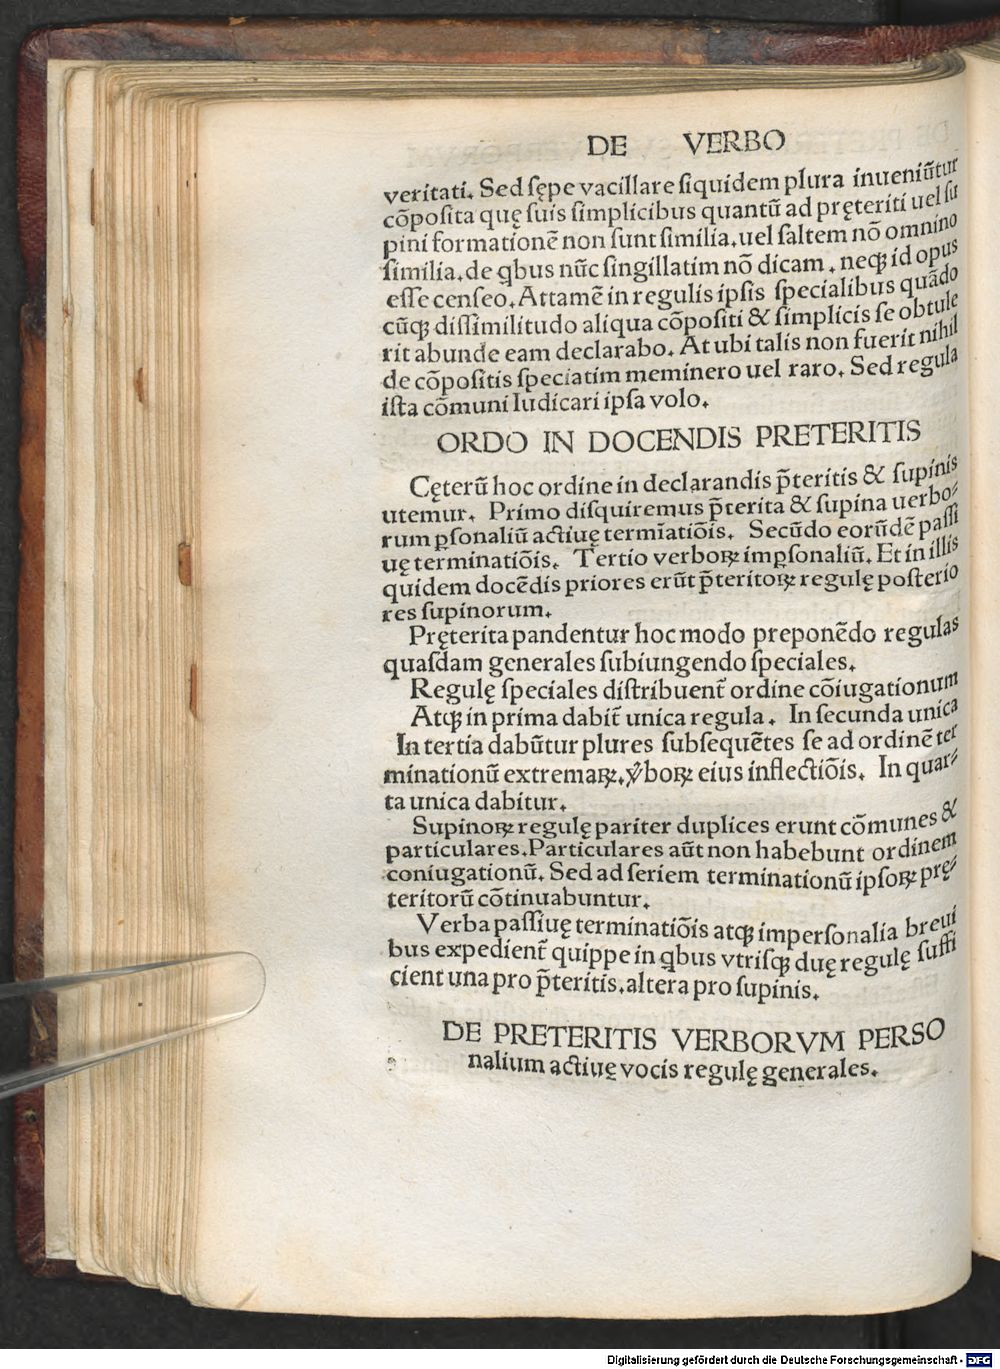 DE VERBO
veritati. Sed sępe vacillare siquidem plura inueniũtur
cõposita quę suis simplicibus quantũ ad pręteriti uel su
pini formationẽ non sunt similia.uel saltem nõ omnino
similia.de qbus nũc singillatim nõ dicam . neqꝫ id opus
esse censeo. Attamẽ in regulis ipsis specialibus quãdo
cũqꝫ dissimilitudo aliqua cõpositi & simplicis se obtule
rit abunde eam declarabo. At ubi talis non fuerit nihil
de cõpositis speciatim meminero uel raro. Sed regula
ista cõmuni Iudicari ipsa volo.
ORDO IN DOCENDIS PRETERITIS
Cęterũ hoc ordine in declarandis p̃teritis & supinis
utemur. Primo disquiremus p̃terita & supina uerbo⸗
rum ꝑsonaliũ actiuę termĩatiõis. Secũdo eorũdẽ passi
uę terminatiõis. Tertio verboꝝ imꝑsonaliũ. Et in illis
quidem docẽdis priores erũt p̃teritoꝝ regulę posterio
res supinorum.
Pręterita pandentur hoc modo preponẽdo regulas
quasdam generales subiungendo speciales.
Regulę speciales distribuent̃ ordine cõiugationum
Atqꝫ in prima dabit̃ unica regula . In secunda unica
In tertia dabũtur plures subsequẽtes se ad ordinẽ ter
minationũ extremaꝝ.v̾boꝝ eius inflectiõis. In quar⸗
ta unica dabitur.
Supinoꝝ regulę pariter duplices erunt cõmunes &
particulares.Particulares aũt non habebunt ordinem
coniugationũ. Sed ad seriem terminationũ ipsoꝝ prę⸗
teritorũ cõtinuabuntur.
Verba passiuę terminatiõis atqꝫ impersonalia breui
bus expedient̃ quippe in qbus vtrisqꝫ duę regulę suffi
cient una pro p̃teritis.altera pro supinis.
DE PRETERITIS VERBORVM PERSO
nalium actiuę vocis regulę generales.
Digitalisierung gefördert durch die Deutsche Forschungsgemeinschaft - DFG